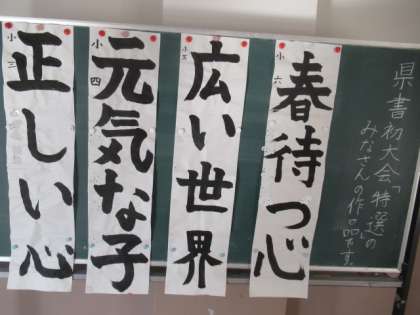 県書初大会「特選」の
みなさんの作品です。
小六
春待つ心
小五
広い世界
小四
元気な子
小三
正しい心